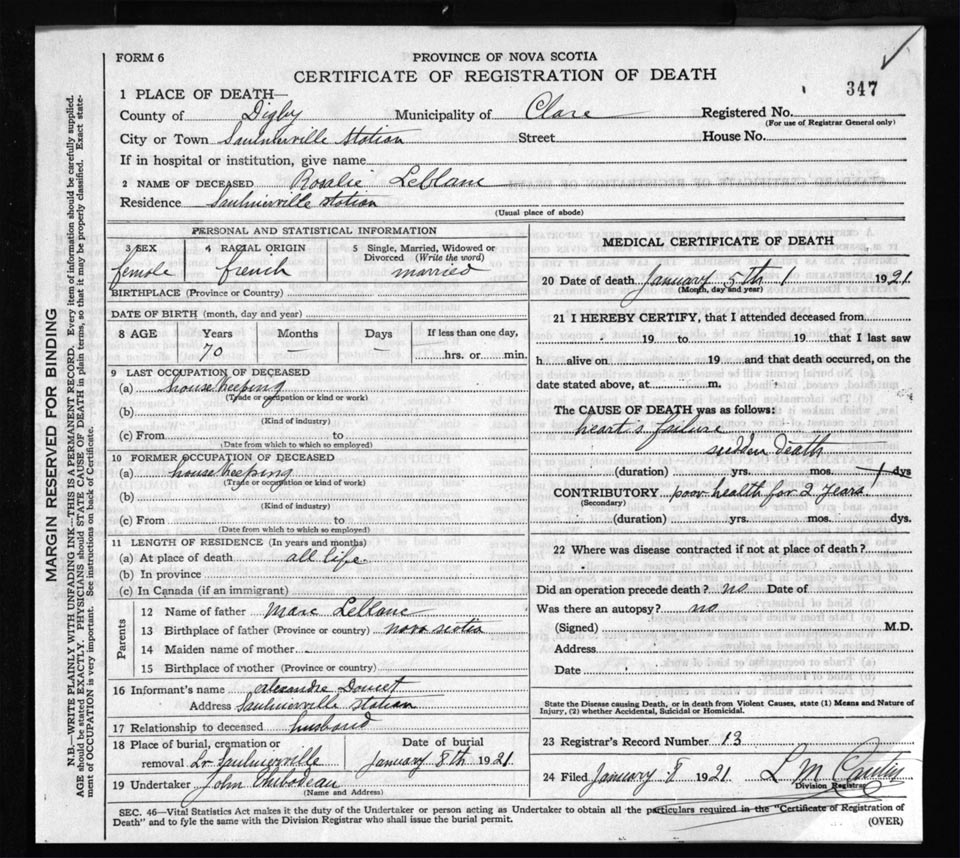 FORM 6
PROVINCE OF NOVA SCOTIA
CERTIFICATE OF REGISTRATION OF DEATH
347
1 PLACE OF DEATH—
County of Digby Municipality of Clare Registered No.
(For use of Registrar General only)
City or Town Saulnierville Station Street House No.
If in hospital or institution, give name
2 NAME OF DECEASED Rosalie Leblanc
Residence Saulnierville Station
(Usual place of abode)
PERSONAL AND STATISTICAL INFORMATION
3 SEX 4 RACIAL ORIGIN 5 Single, Married, Widowed or
Divorced (Write the word)
female french married
BIRTHPLACE (Province or Country)
DATE OF BIRTH (month, day and year)
8 AGE Years Months Days If less than one day,
70 — — hrs. or min.
9 LAST OCCUPATION OF DECEASED
(a) house Keeping
(Trade or occupation or kind of work)
(b)
(Kind of industry)
(c) From to
(Date from which to which so employed)
10 FORMER OCCUPATION OF DECEASED
(a) house Keeping
(Trade or occupation or kind of work)
(b)
(Kind of industry)
(c) From to
(Date from which to which so employed)
11 LENGTH OF RESIDENCE (In years and months)
(a) At place of death all life
(b) In province
(c) In Canada (if an immigrant)
Parents
12 Name of father Marc Leblanc
13 Birthplace of father (Province or country) nova scotia
14 Maiden name of mother
15 Birthplace of mother (Province or country)
16 Informant's name alexandre Doucet
Address Saulnierville Station
17 Relationship to deceased husband
18 Place of burial, cremation or Date of burial
removal Lr Saulnierville January 8th 1921
19 Undertaker John Thibodeau
(Name and Address)
MEDICAL CERTIFICATE OF DEATH
20 Date of death January 5th 1921
(Month, day and year)
21 I HEREBY CERTIFY, that I attended deceased from
19 to 19 that I last saw
h alive on 19 and that death occurred, on the
date stated above, at m.
The CAUSE OF DEATH was as follows:
heart's failure
sudden death
(duration) yrs. mos. 1 dys
CONTRIBUTORY poor health for 2 years
(Secondary)
(duration) yrs. mos. dys.
22 Where was disease contracted if not at place of death?
Did an operation precede death? no Date of
Was there an autopsy? no
(Signed) M.D.
Address
Date
State the Disease causing Death, or in death from Violent Causes, state (1) Means and Nature of
Injury, (2) whether Accidental, Suicidal or Homicidal.
23 Registrar's Record Number 13
24 Filed January 8 1921 L M Cantin
Division Registrar
SEC. 46—Vital Statistics Act makes it the duty of the Undertaker or person acting as Undertaker to obtain all the particulars required in the "Certificate of Registration of
Death" and to fyle the same with the Division Registrar who shall issue the burial permit.
(OVER)
MARGIN RESERVED FOR BINDING
N.B.—WRITE PLAINLY WITH UNFADING INK—THIS IS A PERMANENT RECORD. Every item of information should be carefully supplied.
AGE should be stated EXACTLY. PHYSICIANS should STATE CAUSE OF DEATH in plain terms, so that it may be properly classified. Exact state-
ment of OCCUPATION is very important. See instructions on back of Certificate.